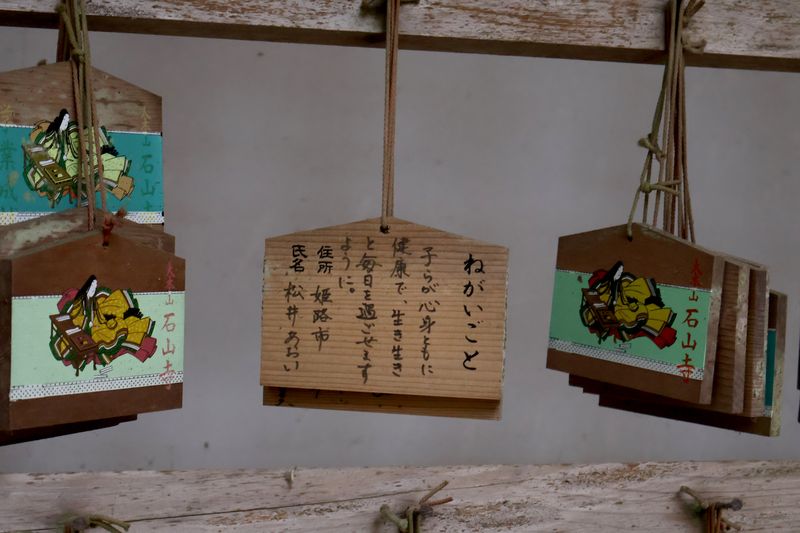 石山寺
石山寺
ねがいごと
子らが心身ともに
健康で、生き生き
と毎日を過ごせます
ように。
住所 姫路市
氏名 松井あおい
石山寺